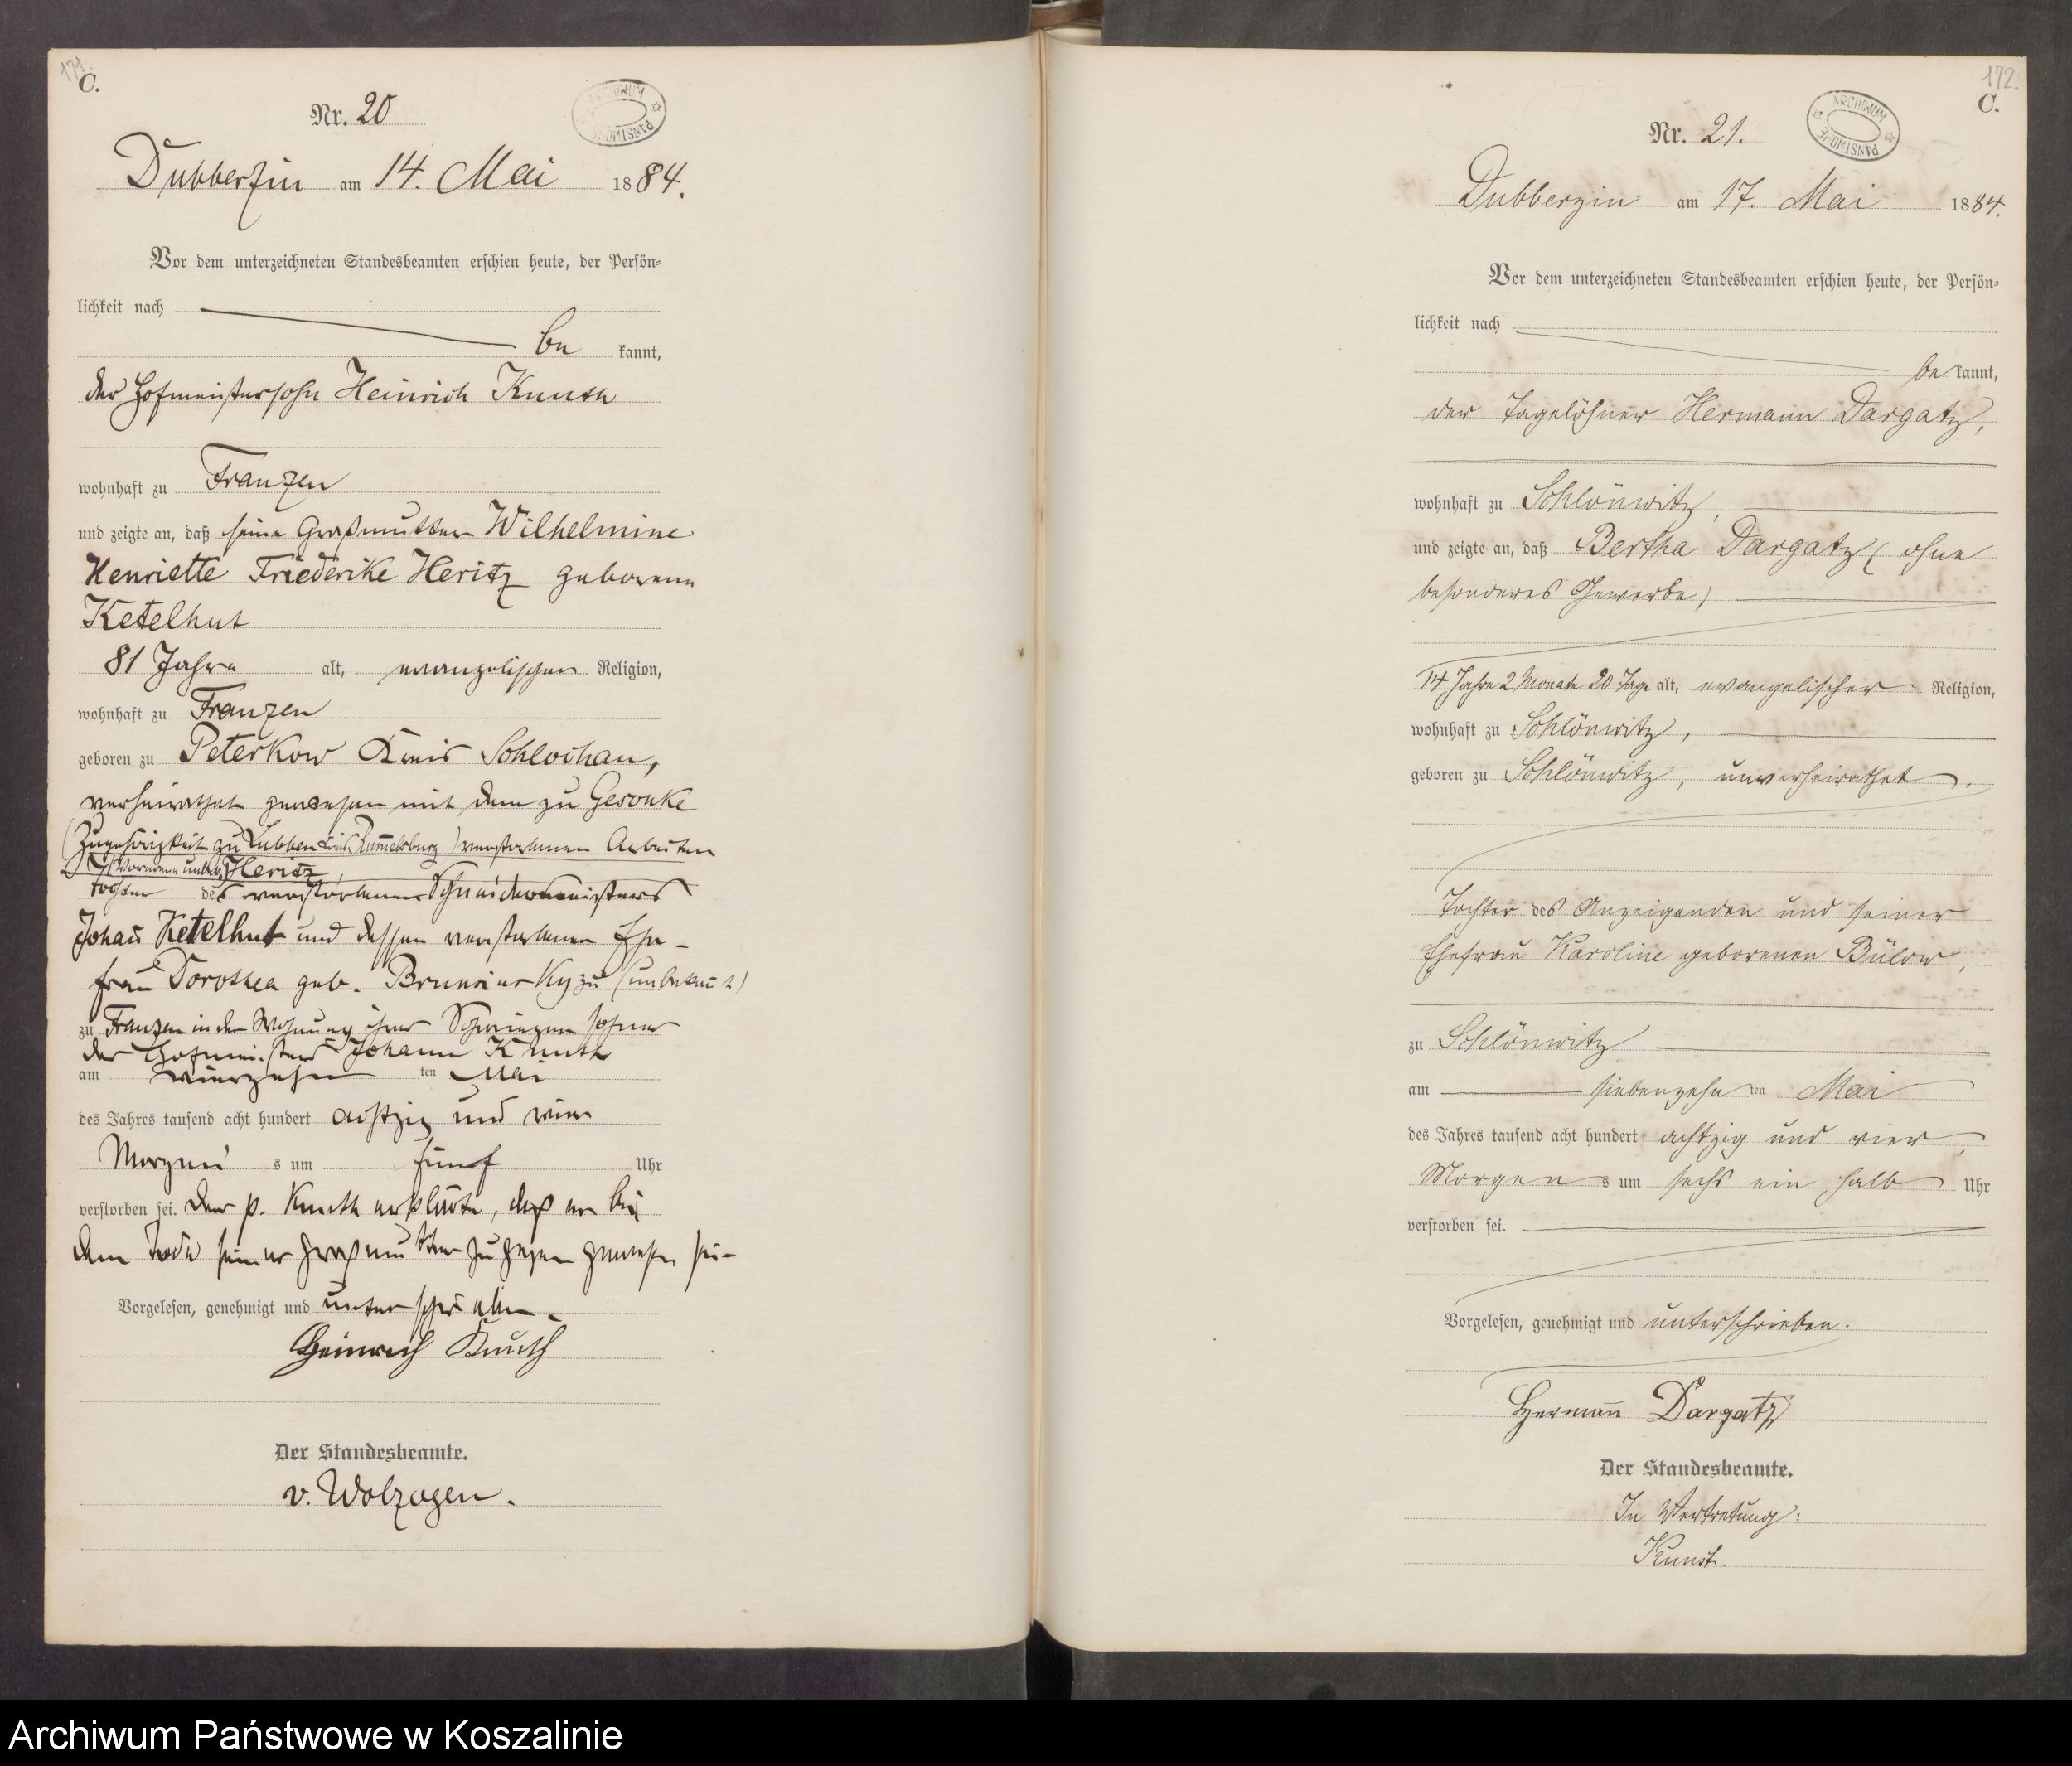 171.
C.
Nr. 20
ARCHIWUM PAŃSTWOWE
Dubberzin am 14. Mai 1884.
Vor dem unterzeichneten Standesbeamten erschien heute, der Persön-
lichkeit nach
be kannt,
der Hofmeistersohn Heinrich Knuth
wohnhaft zu Franzen
und zeigte an, daß seine Großmutter Wilhelmine
Henriette Friederike Heritz geborene
Ketelhut
81 Jahre alt, evangelischer Religion,
wohnhaft zu Franzen
geboren zu Peterkow Kreis Schlochau,
verheirathet gewesen mit dem zu Gesonke
(Zugehörigkeit zu Lubben Kreis Rummelsburg) verstorbenen Arbeiter
(Vorname unbek.) Heritz,
Tochter des verstorbenen Schneidermeisters
Johan̄ Ketelhut und dessen verstorbenen Ehe-
frau Dorothea geb. zu (unbekan̄t)
zu Franzen in der Wohnung ihres Schwiegersohnes
des Hofmeisters Johann Knuth
am vierzehn ten Mai
des Jahres tausend acht hundert achtzig und vier
Morgen s um fünf Uhr
verstorben sei. Der p. Knuth erklärte, daß er bei
dem Tode seiner Großmutter zugegen gewesen sei-
Vorgelesen, genehmigt und unterschrieben.
Heinrich Knuth
Der Standesbeamte.
v. Wolzogen.
172.
C.
Nr. 21.
ARCHIWUM PAŃSTWOWE
Dubberzin am 17. Mai 1884.
Vor dem unterzeichneten Standesbeamten erschien heute, der Persön-
lichkeit nach
be kannt,
der Tagelöhner Hermann Dargatz,
wohnhaft zu Schlönwitz,
und zeigte an, daß Bertha Dargatz (ohne
besonderes Gewerbe)
14 Jahre 2 Monate 20 Tage alt, evangelischer Religion,
wohnhaft zu Schlönwitz,
geboren zu Schlönwitz, unverheirathet,
Tochter des Anzeigenden und seiner
Ehefrau Karoline geborenen Bülow,
zu Schlönwitz
am siebenzehn ten Mai
des Jahres tausend acht hundert achtzig und vier,
Morgen s um sechs ein halb Uhr
verstorben sei.
Vorgelesen, genehmigt und unterschrieben.
Herman̄ Dargatz
Der Standesbeamte.
In Vertretung:
Kunst.
Archiwum Państwowe w Koszalinie